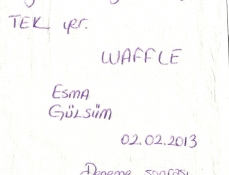 TEK yer.
WAFFLE
ESMA
GÜLSÜM
02.02.2013
Deneme sonrası